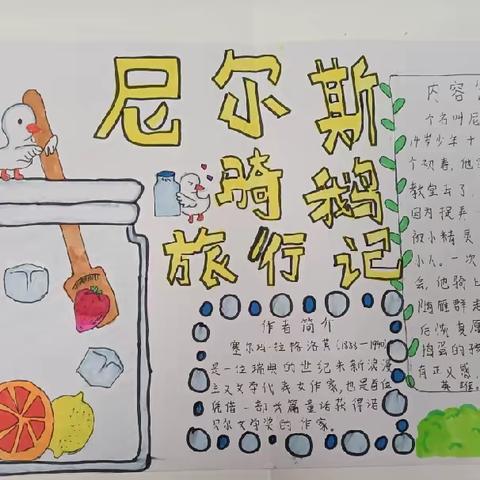 尼尔斯
骑鹅
旅行记
作者简介
塞尔玛·拉格洛芙(1858—1940)
是一位瑞典的世纪末新浪漫
主义文学代表女作家,也是首位
凭借一部长篇童话获得诺
贝尔文学奖的作家。
内容
个名叫尼
14岁少年十
个初春,他
教堂去了,
因为捉弄一
被小精灵
小人。一次
会,他骑上
随雁群走
后恢复原
捣蛋的孩
有正义感,
英雄。